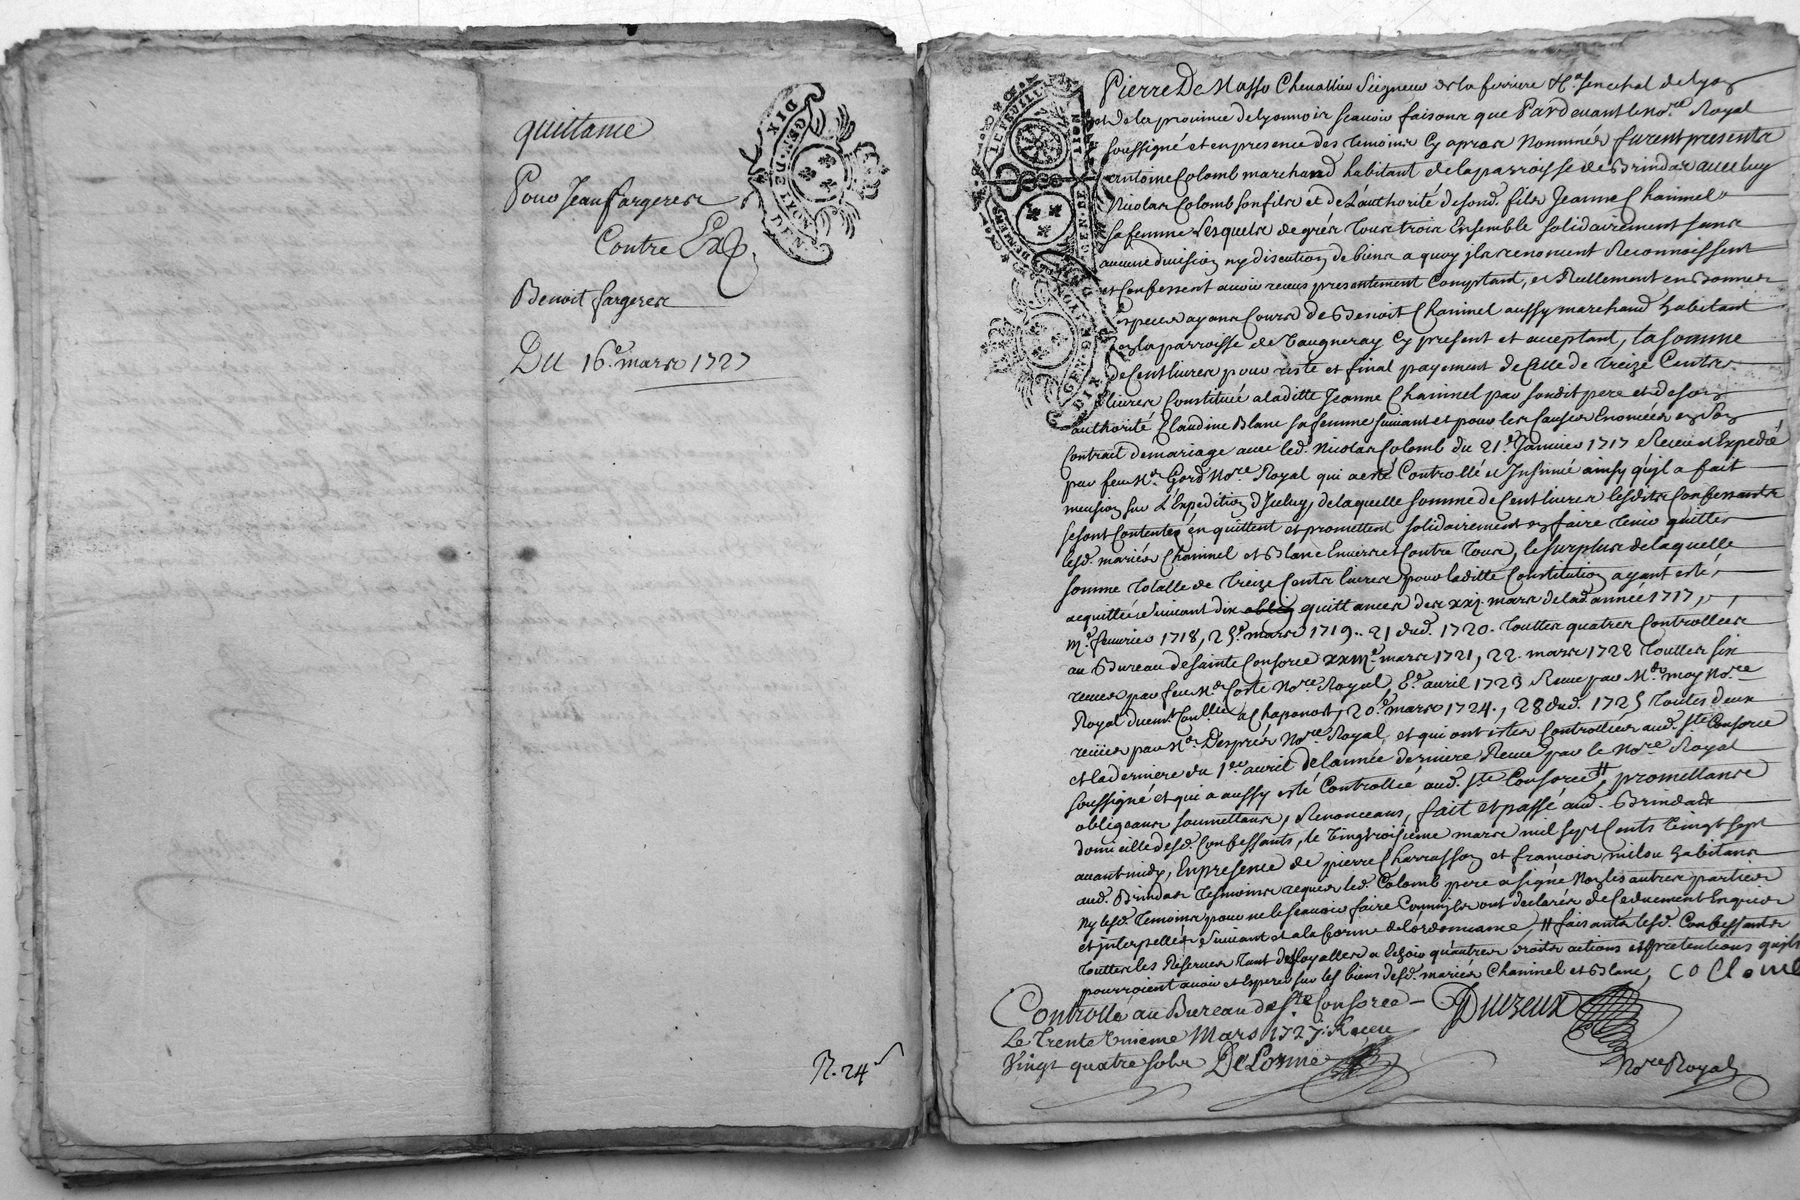 quittance
Pour Jean fargeres
Contre
Benoit fargeres
Du 16e. mars 1727
GEN. DE LYON
DIX
R. 24s
LE FEUILLE
DENIERS
GEN. DE
DIX
Pierre De Masso Chevallier Seigneur de la ferriere &c.a senechal de Lyon
et de la province de lyonnois scavoir faisons que Pardevant le no.re Royal
soussigné et en presence des temoins cy apres Nommés furent presents
antoine Colomb marchand habitant de la parroisse de Brindas avec luy
Nicolas Colomb son fils et de L'authorité de sond. fils Jeanne Chaninel
sa femme Lesquels de grés tous trois Ensemble solidairement sans
aucune division ny discution de biens a quoy ils renoncent Reconnoissent
et Confessent avoir receus presentement Comptant, et Reellement en Bonnes
Especes ayans Cours de Benoit Chaninel aussy marchand habitant
en la parroisse de Vaugneray Cy present et acceptant, la somme
de Cent livres pour reste et final payement de Celle de Treize Cents
livres Constitué a laditte Jeanne Chaninel par sondit pere et de son
authorité Claudine Blanc sa femme suivant et pour les Causes Enoncées en son
Contrait de mariage avec led. Nicolas Colomb du 21e. Janvier 1717 Receu et Expedié
par feu Me. Gord No.re Royal qui a esté Controllé et Insinué ainsy qu'il a fait
mension sur L'Expedition d'Iceluy, de laquelle somme de Cent livres lesdits Confessants
se sont Contentés en quittent et promettent solidairement en faire tenir quittes
lesd. mariés Chaninel et Blanc Envers et Contre Tous, le surplus de laquelle
somme totalle de Treize Cents livres pour laditte Constitution ayant esté
acquittée suivant dix quittances des xxj. mars de lad. année 1717,
fevrier 1718, 25e. mars 1719. 21 dud. 1720. Touttes quatres Controllées
au Bureau de sainte Consorce mars 1721, 22. mars 1722 Touttes six
receues par feu Me. Coste No.re Royal, 8e. avril 1723 Receue par Me. may No.re
Royal a Chaponost, 20e. mars 1724., 28 dud. 1725 Toutes deux
receües par Me. Desprès No.re Royal, et qui ont estés Controllées aud. Ste Consorce
et la derniere du 1er. avril de l'année derniere Receue par le No.re Royal
soussigné et qui a aussy esté Controllée aud. Ste Consorce // promettans
obligeans soumettans, Renonceans, fait et passé aud. Brindas
domicille desd. Confessants, le vingtroisieme mars mil sept Cents vingt sept
avant midy, En presence de pierre Charrasson et francois milou habitans
aud. Brindas temoins requis led. Colomb pere a signé Non les autres parties
Ny lesd. temoins pour ne le scavoir faire Comm'ils ont declarés de Ce duement Enquis
et interpellés suivant et a la forme de l'ordonnance // faisants lesd. Confessants
touttes les Reserves tant des loyalles a Echoir qu'autres droits actions et pretentions qu'ils
pourroient avoir et Esperer sur les biens desd. mariés Chaninel et Blanc, Collomb
Controllé au Bureau de Ste Consorce Dureux
Le Trente unieme Mars 1727. Receu
Vingt quatre sols DeLorme No.re Royal